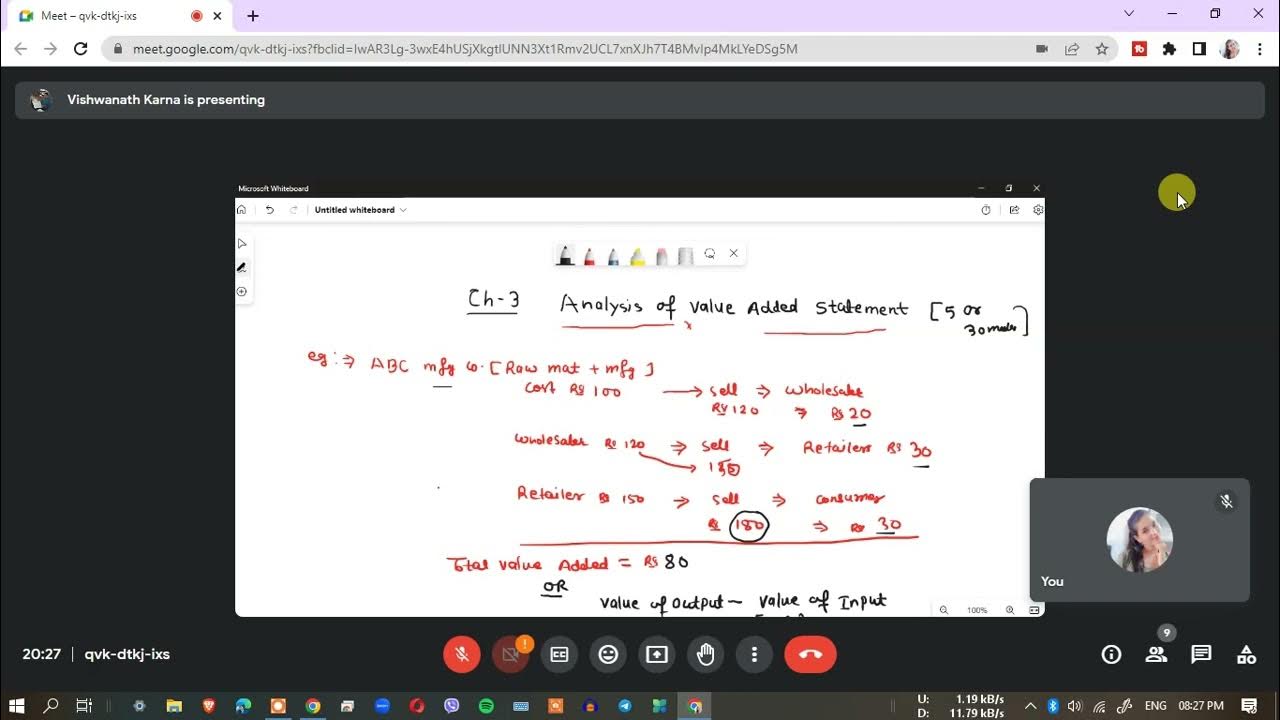 Meet – qvk-dtkj-ixs
meet.google.com/qvk-dtkj-ixs?fbclid=IwAR3Lg-3wxE4hUSjXkgtlUNN3Xt1Rmv2UCL7xnXJh7T4BMvIp4MkLYeDSg5M
Vishwanath Karna is presenting
Microsoft Whiteboard
Untitled whiteboard
Ch-3 Analysis of Value Added Statement [5 or
30 marks]
eg:⇒ ABC mfg co. [Raw mat + mfg]
cost Rs 100 → sell ⇒ wholesaler
Rs 120 ⇒ Rs 20
wholesaler Rs 120 ⇒ sell ⇒ Retailers Rs 30
150
Retailer Rs 150 ⇒ sell ⇒ consumer
Rs 180 ⇒ Rs 30
Total value Added = Rs 80
OR
Value of Output – Value of Input
100%
You
9
20:27 | qvk-dtkj-ixs
U: 1.19 kB/s
D: 11.79 kB/s
ENG 08:27 PM